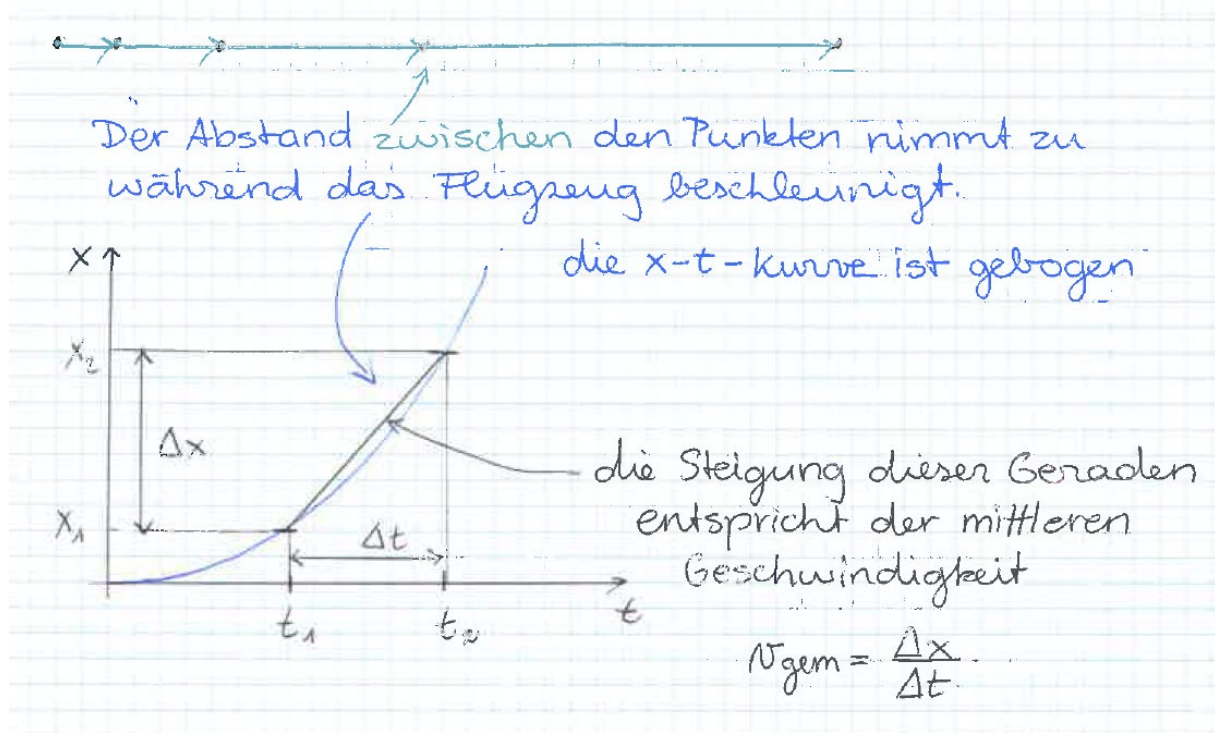 Der Abstand zwischen den Punkten nimmt zu
während das Flugzeug beschleunigt.
die x-t-kurve ist gebogen
x
x₂
Δx
x₁
Δt
t₁
t₂
t
die Steigung dieser Geraden
entspricht der mittleren
Geschwindigkeit
vgem = Δx/Δt